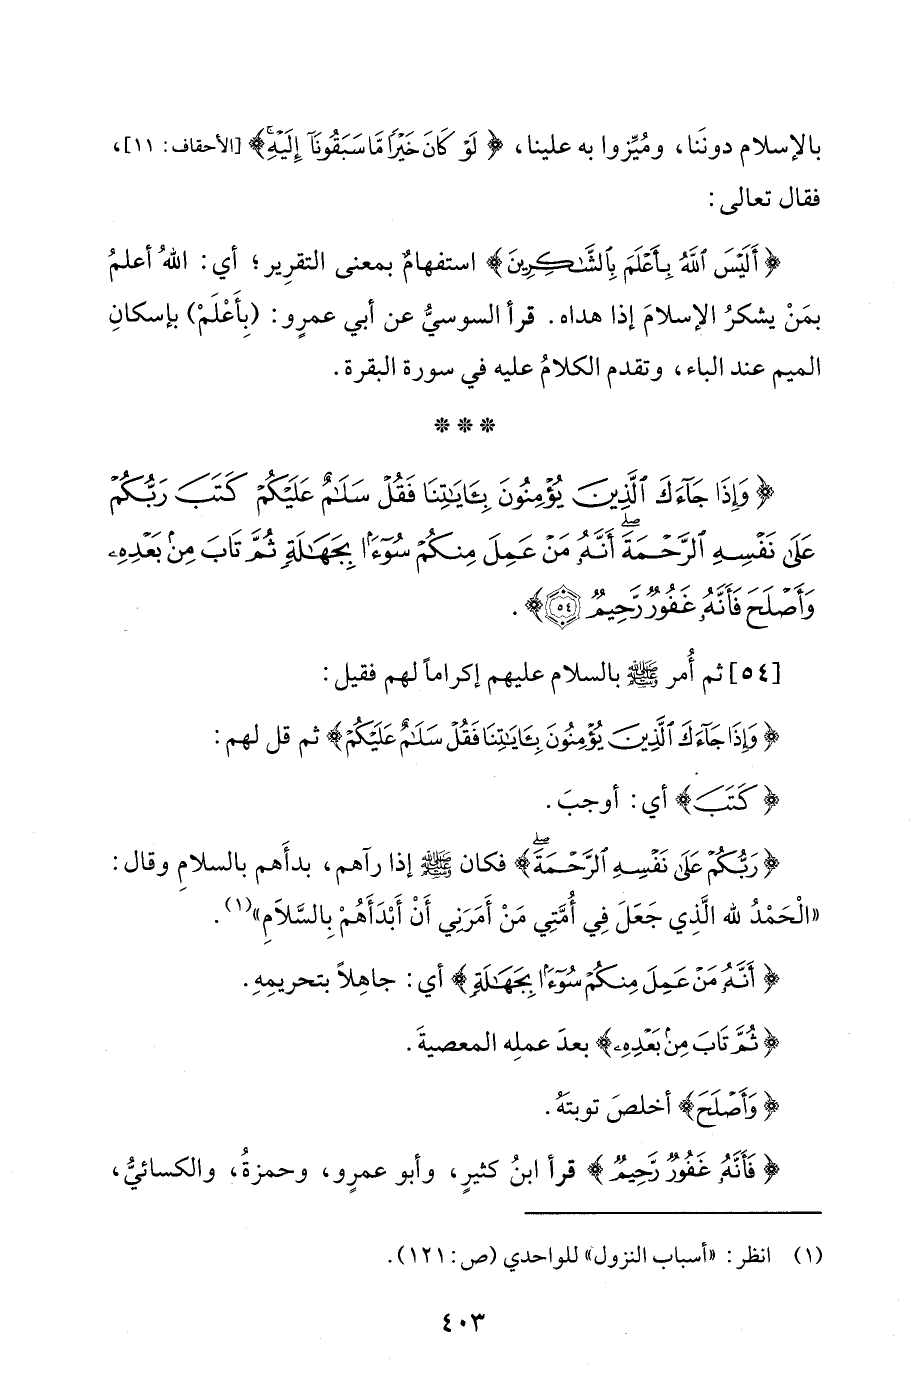 بالإسلام دوننَا، ومُيِّزوا به علينا، ﴿ لَوْ كَانَ خَيْرًا مَّا سَبَقُونَآ إِلَيْهِ ۚ﴾ [الأحقاف: ١١]،
فقال تعالى:
﴿ أَلَيْسَ ٱللَّهُ بِأَعْلَمَ بِٱلشَّٰكِرِينَ ﴾ استفهامٌ بمعنى التقريرِ؛ أي: اللهُ أعلمُ
بمَنْ يشكرُ الإسلامَ إذا هداه. قرأ السوسيُّ عن أبي عمرٍو: (بِأَعْلَمْ) بإسكانِ
الميم عند الباء، وتقدم الكلامُ عليه في سورة البقرة.
* * *
﴿ وَإِذَا جَآءَكَ ٱلَّذِينَ يُؤْمِنُونَ بِـَٔايَٰتِنَا فَقُلْ سَلَٰمٌ عَلَيْكُمْ كَتَبَ رَبُّكُمْ
عَلَىٰ نَفْسِهِ ٱلرَّحْمَةَ ۖ أَنَّهُۥ مَنْ عَمِلَ مِنكُمْ سُوٓءًۢا بِجَهَٰلَةٍ ثُمَّ تَابَ مِنۢ بَعْدِهِۦ
وَأَصْلَحَ فَأَنَّهُۥ غَفُورٌ رَّحِيمٌ ٥٤ ﴾.
[٥٤] ثم أُمر ﷺ بالسلام عليهم إكراماً لهم فقيل:
﴿ وَإِذَا جَآءَكَ ٱلَّذِينَ يُؤْمِنُونَ بِـَٔايَٰتِنَا فَقُلْ سَلَٰمٌ عَلَيْكُمْ ﴾ ثم قل لهم:
﴿ كَتَبَ ﴾ أي: أوجبَ.
﴿ رَبُّكُمْ عَلَىٰ نَفْسِهِ ٱلرَّحْمَةَ ۖ ﴾ فكان ﷺ إذا رآهم، بدأَهم بالسلامِ وقال:
«الْحَمْدُ لله الَّذِي جَعَلَ فِي أُمَّتِي مَنْ أَمَرَنِي أَنْ أَبْدَأَهُمْ بِالسَّلَامِ»(١).
﴿ أَنَّهُۥ مَنْ عَمِلَ مِنكُمْ سُوٓءًۢا بِجَهَٰلَةٍ ﴾ أي: جاهِلاً بتحريمِهِ.
﴿ ثُمَّ تَابَ مِنۢ بَعْدِهِۦ ﴾ بعدَ عملِه المعصيةَ.
﴿ وَأَصْلَحَ ﴾ أخلصَ توبتَهُ.
﴿ فَأَنَّهُۥ غَفُورٌ رَّحِيمٌ ﴾ قرأ ابنُ كثيرٍ، وأبو عمرٍو، وحمزةُ، والكسائيُّ،
(١) انظر: «أسباب النزول» للواحدي (ص: ١٢١).
٤٠٣